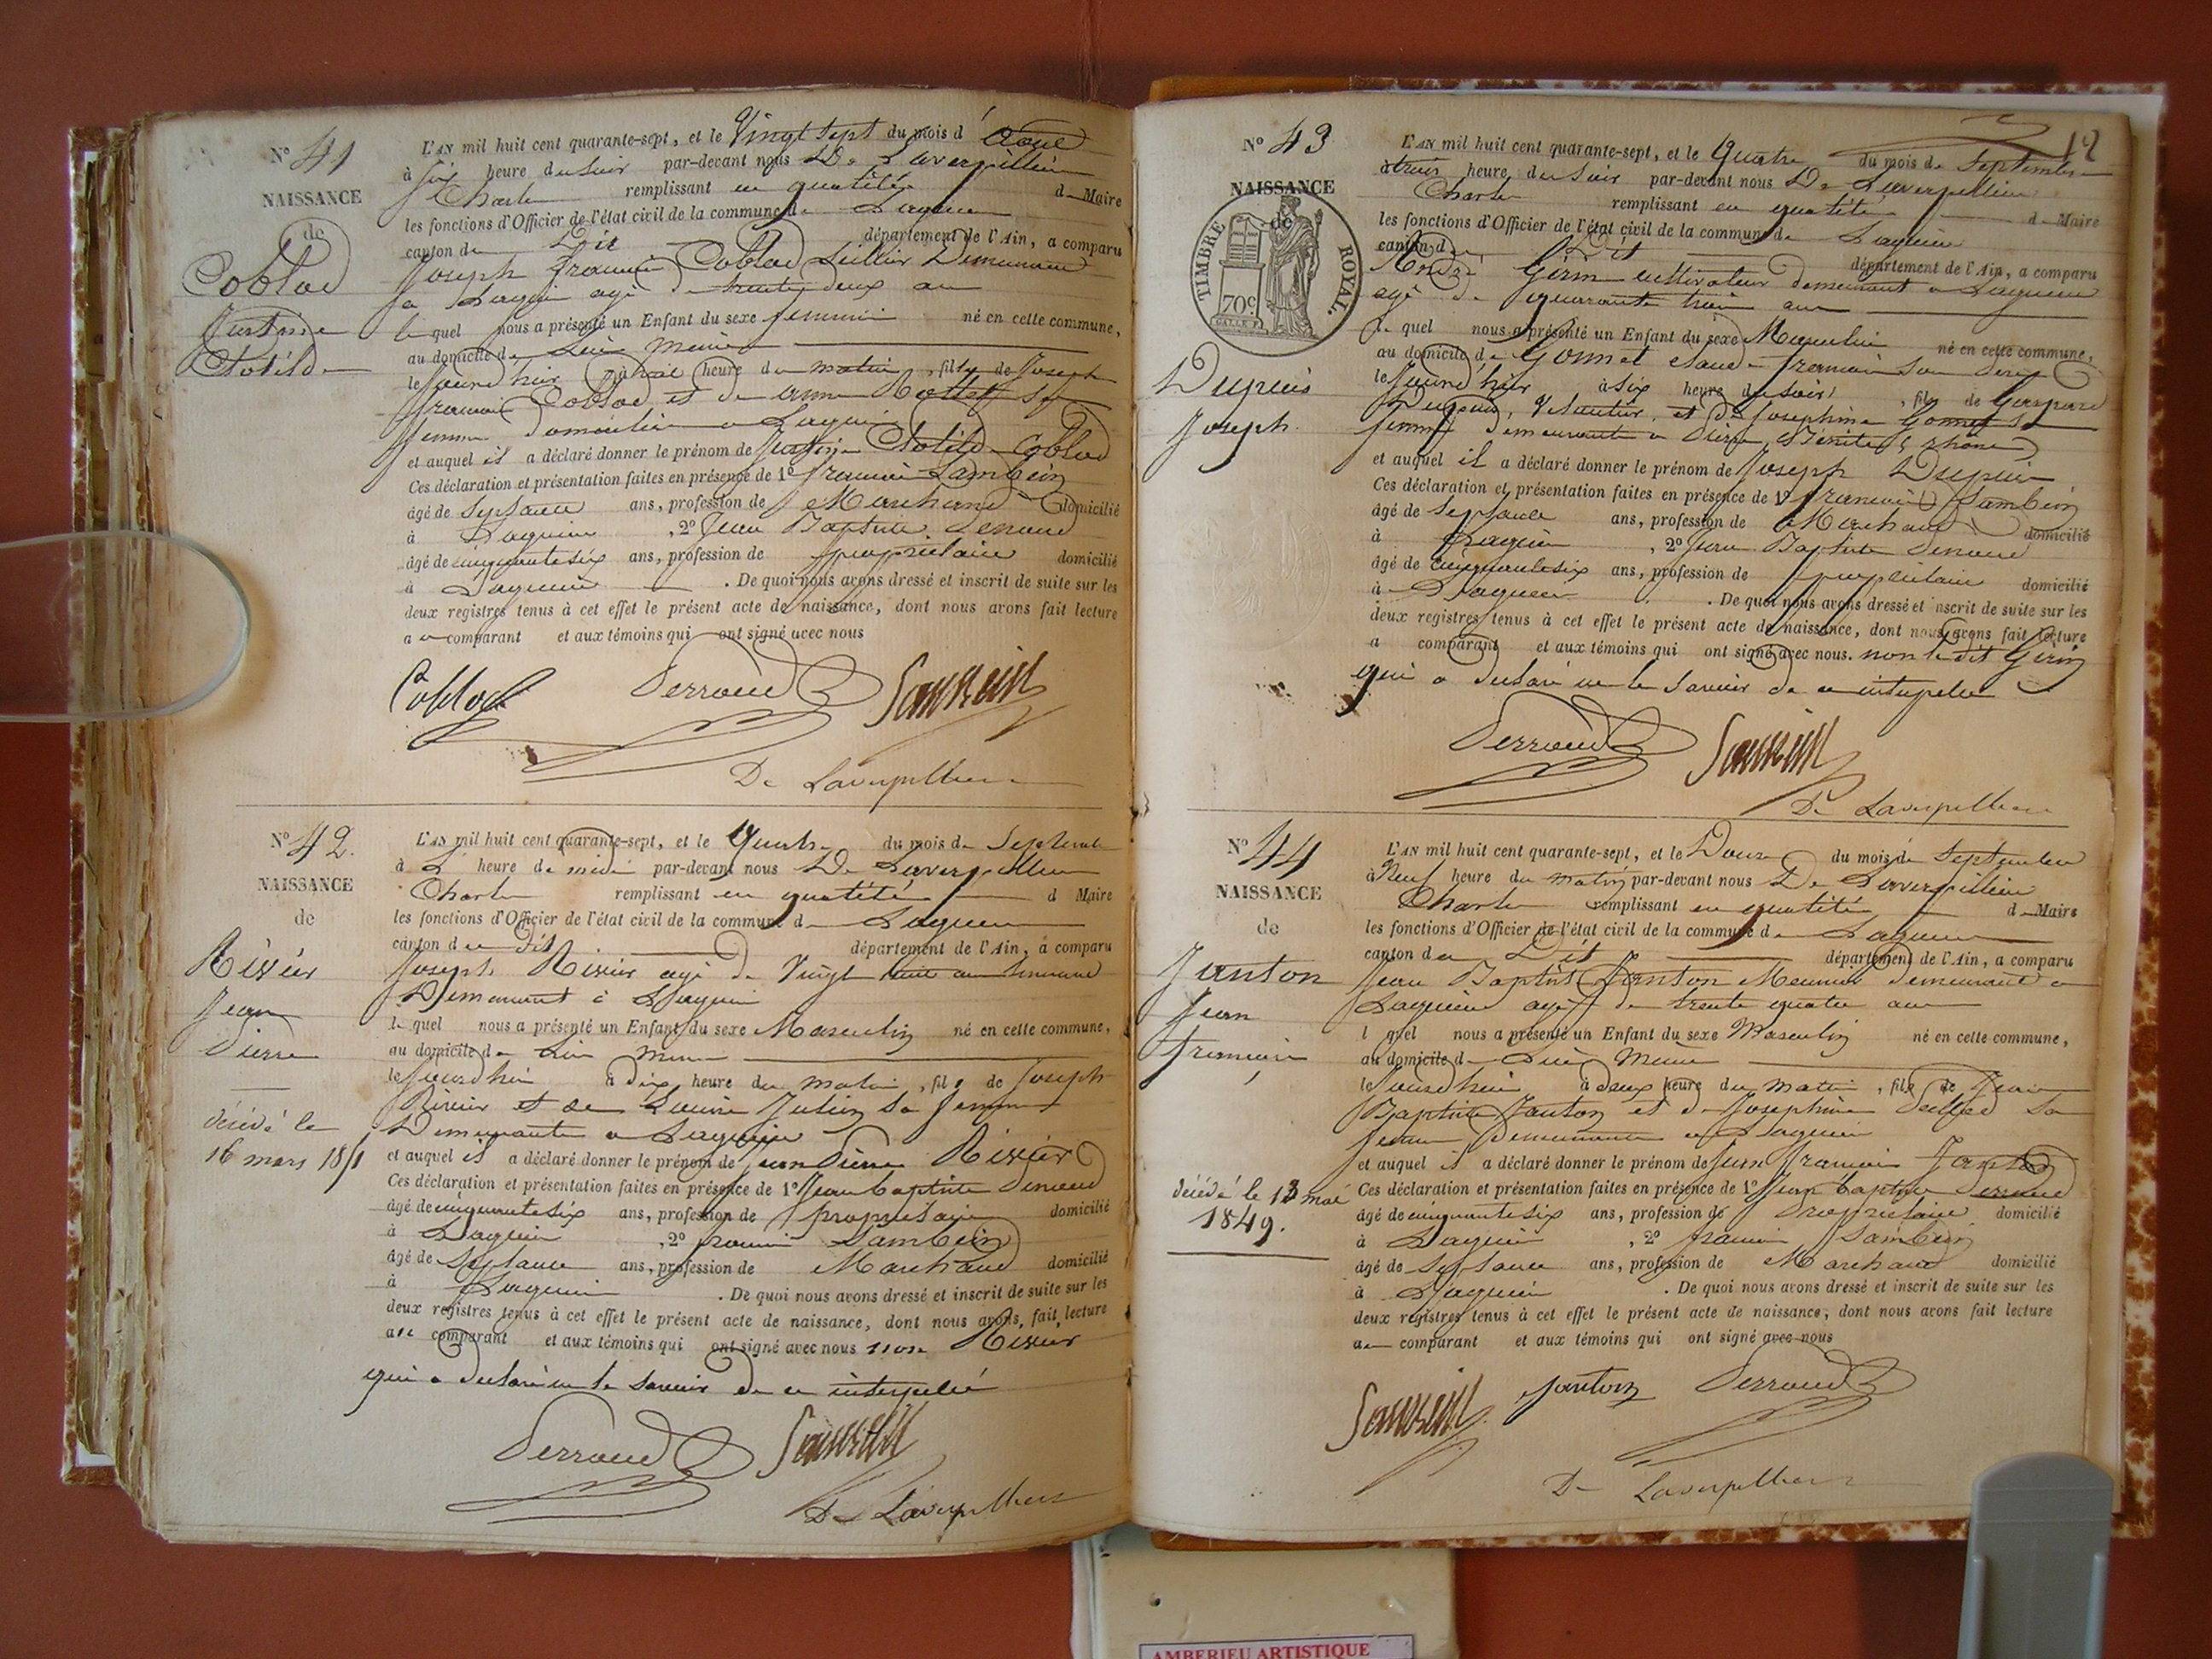 N° 41
NAISSANCE
de
Coblod
Justine
Clotilde
L'AN mil huit cent quarante-sept, et le Vingt sept du mois d'Aout
à Six heure du Soir par-devant nous De Laverpillière
Charles remplissant en qualité de Maire
les fonctions d'Officier de l'état civil de la commune de Lagnieu
canton de Dit département de l'Ain, a comparu
Joseph Francois Coblod Sellier Demeurant
a Lagnieu agé de trente deux ans
le quel nous a présenté un Enfant du sexe feminin né en cette commune,
au domicile de
le jourd'hui à heure du matin, fille de Joseph
francois Coblod et de anne sa
femme a Lagnieu
et auquel il a déclaré donner le prénom de Justine Clotilde Coblod
Ces déclaration et présentation faites en présence de 1° francois Sambein
âgé de Septante ans, profession de Marchand domicilié
à Lagnieu, 2° Jean Baptiste Perroud
âgé de cinquante six ans, profession de propriétaire domicilié
à Lagnieu. De quoi nous avons dressé et inscrit de suite sur les
deux registres tenus à cet effet le présent acte de naissance, dont nous avons fait lecture
a comparant et aux témoins qui ont signé avec nous
Coblod Perroud Sambein
De Laverpilliere
N° 42.
NAISSANCE
de
Rivier
Jean
Pierre
décédé le
16 mars
L'AN mil huit cent quarante-sept, et le Quatre du mois de Septembre
à heure de midi par-devant nous De Laverpilliere
Charles remplissant en qualité d Maire
les fonctions d'Officier de l'état civil de la commune de Lagnieu
canton du dit département de l'Ain, a comparu
Joseph Rivier agé de Vingt huit ans
Demeurant à Lagnieu
le quel nous a présenté un Enfant du sexe Masculin né en cette commune,
au domicile de
le jourd'hui à dix heure du matin, fils de Joseph
Rivier et de Louise sa femme
Demeurante a Lagnieu
et auquel il a déclaré donner le prénom de jean Pierre Rivier
Ces déclaration et présentation faites en présence de 1° Jean baptiste Perroud
âgé de cinquante six ans, profession de propriétaire domicilié
à Lagnieu, 2° francois Sambein
âgé de Septante ans, profession de Marchand domicilié
à Lagnieu. De quoi nous avons dressé et inscrit de suite sur les
deux registres tenus à cet effet le présent acte de naissance, dont nous avons fait lecture
au comparant et aux témoins qui ont signé avec nous non Rivier
qui a declaré ne le savoir de ce interpelé
Perroud Sambein
De Laverpilliere
12
N° 43
NAISSANCE
de
TIMBRE ROYAL.
70c
Dupuis
Joseph
L'AN mil huit cent quarante-sept, et le Quatre du mois de Septembre
à trois heure du Soir par-devant nous De Laverpilliere
Charles remplissant en qualité de Maire
les fonctions d'Officier de l'état civil de la commune de Lagnieu
canton d Dit département de l'Ain, a comparu
André Girin cultivateur demeurant a Lagnieu
agé de quarante trois ans
le quel nous a présenté un Enfant du sexe Masculin né en cette commune,
au domicile de Gonnet
le jourd'hui à six heure du soir, fils de Gaspard
Dupuis, et de Josephine Gonnet sa
femme demeurante a rhone
et auquel il a déclaré donner le prénom de Joseph Dupuis
Ces déclaration et présentation faites en présence de 1° francois Sambein
âgé de Septante ans, profession de Marchand domicilié
à Lagnieu, 2° Jean Baptiste Perroud
âgé de cinquante six ans, profession de propriétaire domicilié
à Lagnieu. De quoi nous avons dressé et inscrit de suite sur les
deux registres tenus à cet effet le présent acte de naissance, dont nous avons fait lecture
a comparant et aux témoins qui ont signé avec nous. non le dit Girin
qui a declaré ne le savoir de ce interpelé
Perroud Sambein
De Laverpilliere
N° 44
NAISSANCE
de
Janton
Jean
francois
décédé le 13 mai
1849.
L'AN mil huit cent quarante-sept, et le Douze du mois de Septembre
à Neuf heure du matin par-devant nous De Laverpilliere
Charles remplissant en qualité de Maire
les fonctions d'Officier de l'état civil de la commune de Lagnieu
canton du Dit département de l'Ain, a comparu
Jean Baptiste Janton Meunier demeurant a
Lagnieu agé de trente quatre ans
l quel nous a présenté un Enfant du sexe Masculin né en cette commune,
au domicile d
le jourd'hui à deux heure du matin, fils de Jean
Baptiste Janton et de Josephine sa
femme Demeurante a Lagnieu
et auquel il a déclaré donner le prénom de Jean francois Janton
Ces déclaration et présentation faites en présence de 1° Jean baptiste Perroud
âgé de cinquante six ans, profession de Propriétaire domicilié
à Lagnieu, 2° francois Sambein
âgé de Septante ans, profession de Marchand domicilié
à Lagnieu. De quoi nous avons dressé et inscrit de suite sur les
deux registres tenus à cet effet le présent acte de naissance, dont nous avons fait lecture
au comparant et aux témoins qui ont signé avec nous
Sambein Janton Perroud
De Laverpilliere
AMBERIEU ARTISTIQUE